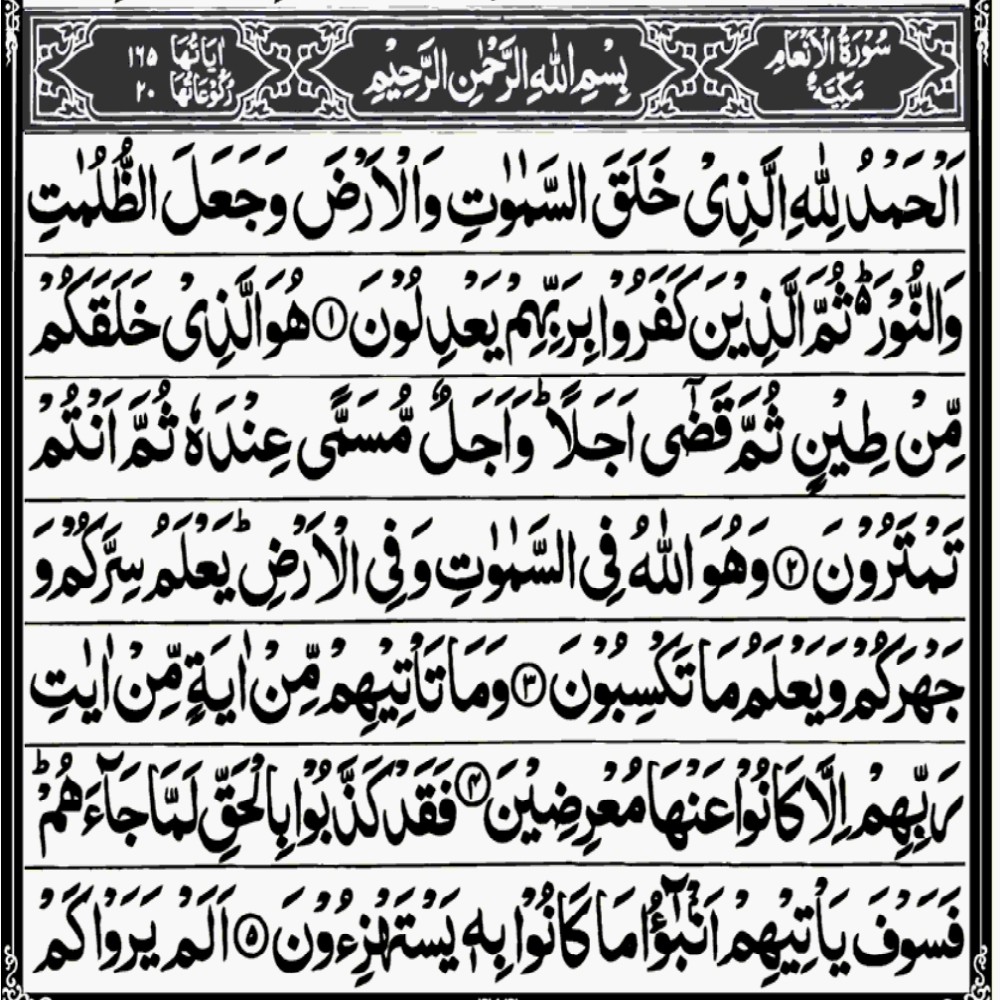 سُوْرَةُ الْاَنْعَامِ مَكِّيَّةٌ
بِسْمِ اللّٰهِ الرَّحْمٰنِ الرَّحِيْمِ
اٰيَاتُهَا ١٦٥ رُكُوْعَاتُهَا ٢٠
اَلْحَمْدُ لِلّٰهِ الَّذِىْ خَلَقَ السَّمٰوٰتِ وَالْاَرْضَ وَجَعَلَ الظُّلُمٰتِ
وَالنُّوْرَ ؕ ثُمَّ الَّذِيْنَ كَفَرُوْا بِرَبِّهِمْ يَعْدِلُوْنَ ۝۱ هُوَ الَّذِىْ خَلَقَكُمْ
مِّنْ طِيْنٍ ثُمَّ قَضٰۤى اَجَلًا ؕ وَاَجَلٌ مُّسَمًّى عِنْدَهٗ ثُمَّ اَنْتُمْ
تَمْتَرُوْنَ ۝۲ وَهُوَ اللّٰهُ فِى السَّمٰوٰتِ وَفِى الْاَرْضِ ؕ يَعْلَمُ سِرَّكُمْ وَ
جَهْرَكُمْ وَيَعْلَمُ مَا تَكْسِبُوْنَ ۝۳ وَمَا تَاْتِيْهِمْ مِّنْ اٰيَةٍ مِّنْ اٰيٰتِ
رَبِّهِمْ اِلَّا كَانُوْا عَنْهَا مُعْرِضِيْنَ ۝۴ فَقَدْ كَذَّبُوْا بِالْحَقِّ لَمَّا جَآءَهُمْ ؕ
فَسَوْفَ يَاْتِيْهِمْ اَنْۢبٰٓؤُا مَا كَانُوْا بِهٖ يَسْتَهْزِءُوْنَ ۝۵ اَلَمْ يَرَوْا كَمْ